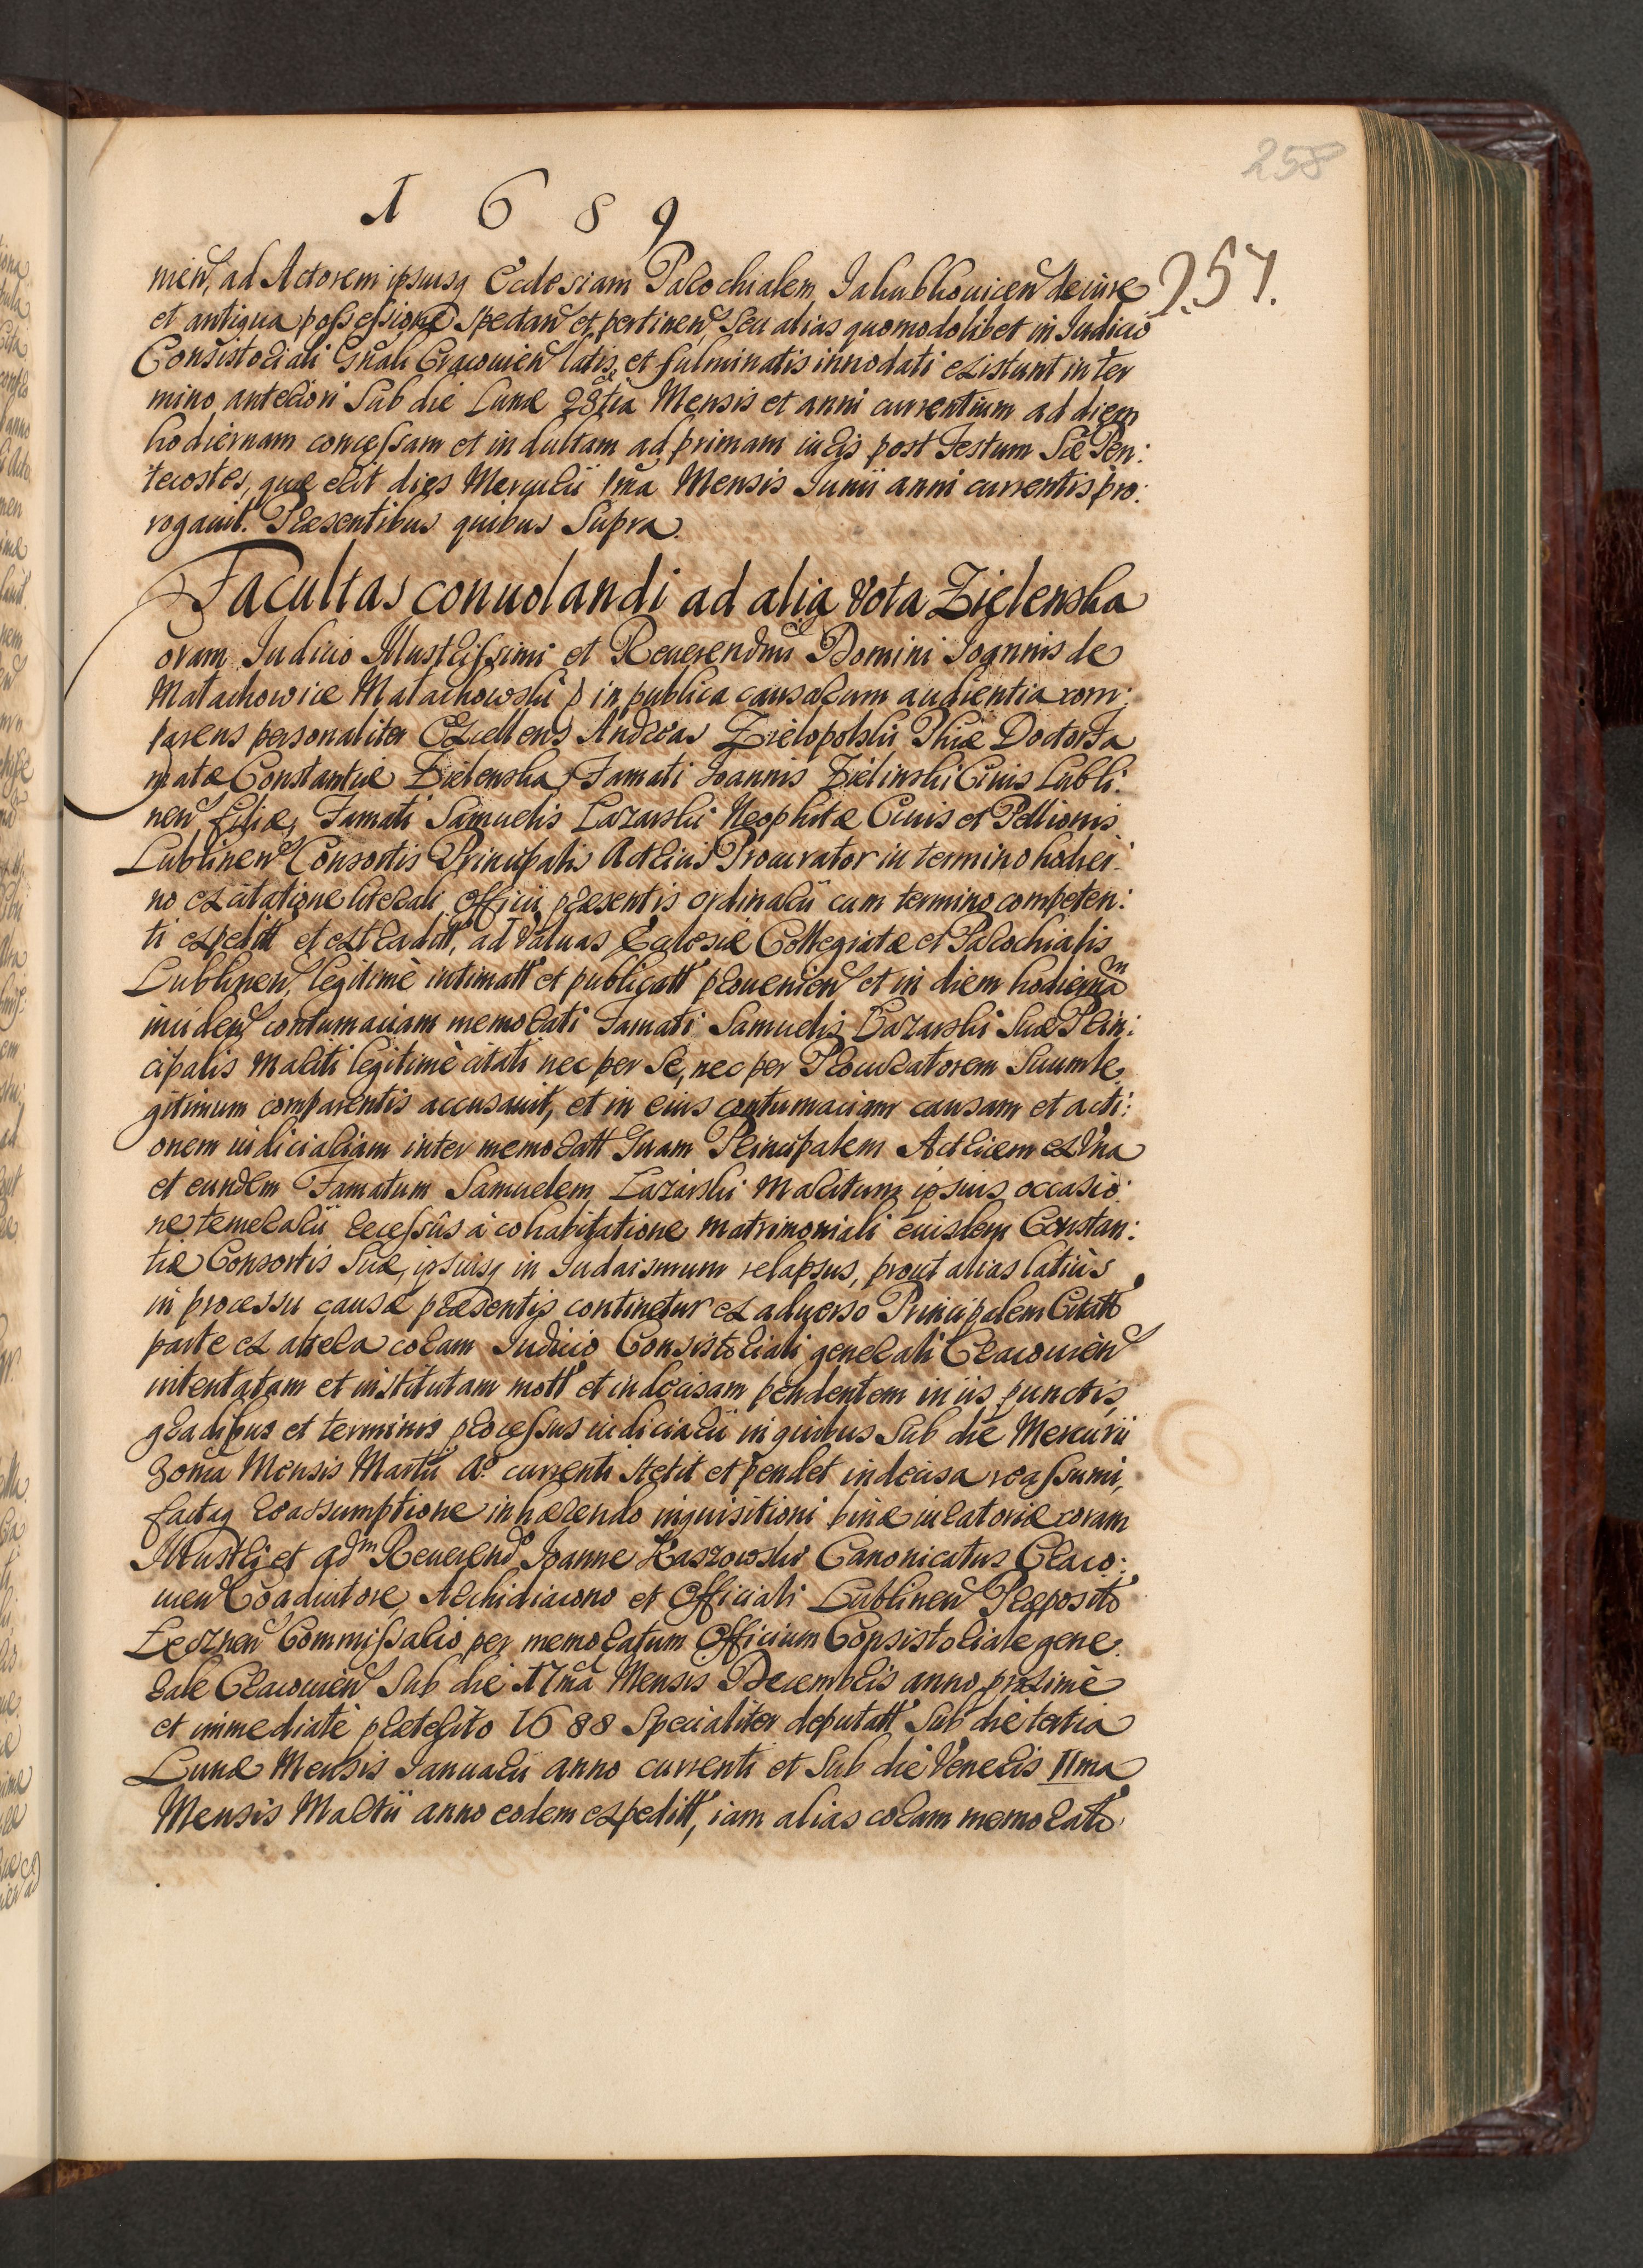 258
1 6 8 9
257.
nień, ad Actorem ipsiusq Ecclesiam Parochialem Jakubkouiceń de iure
et antiqua possessione spectań et pertineń, seu alias quomodolibet in Judicio
Consistoriali Gnali Cracouień latis, et fulminatis innodati existunt in ter
mino anteriori Sub die Lunæ 28tia Mensis et anni currentium ad diem
hodiernam concessam et indultam ad primam iuris post Festum Sæ Pen:
tecostes, quæ erit dies Mercurii 1ma Mensis Junii anni currentis pro:
rogauit. Præsentibus quibus Supra.
Facultas conuolandi ad alia vota Zielenska
Coram Judicio Illustrissimi et Reuerendmi Domini Joannis de
Małachowice Małachowski p in publica causarum audientia com:
parens personaliter Excellens Andreas Zielopolski Phiæ Doctor Fa
matæ Constantiæ Zielenska, Famati Joannis Zielinski Ciuis Lubli:
neń filiæ, Famati Samuelis Lazarski Neophitæ Ciuis et Pellionis
Lublineń Consortis Principalis Actricis Procurator in termino hodier:
no ex citatione literali Officii præsentis ordinarii cum termino competen:
ti expeditt et extraditt, ad valuas Ecclesiæ Collegiatæ et Parochialis
Lublineń, legitimè intimatt et publicatt prouenień et in diem hodiernam
incideń contumaciam memorati Famati Samuelis Lazarski Suæ Prin:
cipalis Mariti legitimè citati nec per Se, nec per Procuratorem Suum le
gitimum comparentis accusauit, et in eius contumaciam causam et acti:
onem iudiciariam inter memoratt Suam Principalem Actricem ex Vna
et eundem Famatum Samuelem Lazarski Maritum ipsius occasio:
ne temerarii recessûs à cohabitatione matrimoniali eiusdem Constan:
tiæ Consortis Suæ, ipsiusq in Judaismum relapsus, prout alias latiùs
in processu causæ præsentis continetur ex aduerso Principalem Citatt
parte ex altera coram Judicio Consistoriali generali Cracouień
intentatam et institutam mott et indecisam pendentem in iis punctis,
gradibus et terminis processus iudiciarii in quibus Sub die Mercurii
30ma Mensis Martii Ao currenti stetit et pendet indecisa reassumi,
factaq reassumptione inhærendo inquisitioni binæ iuratoriæ coram
Illustri et adm Reuerendo Joanne Kaszowski Canonicatus Craco:
uień Coadiutore Archidiacono et Officiali Lublineń Præposito
Łeczneń Commissario per memoratum Officium Consistoriale gene
rale Cracouień Sub die 17ma Mensis Decembris anno proximè
et immediatè præterito 1688 Specialiter deputatt Sub die tertia
Lunæ Mensis Januarii anno currenti et Sub die Veneris 11ma
Mensis Martii anno eodem expeditt, iam alias coram memorato